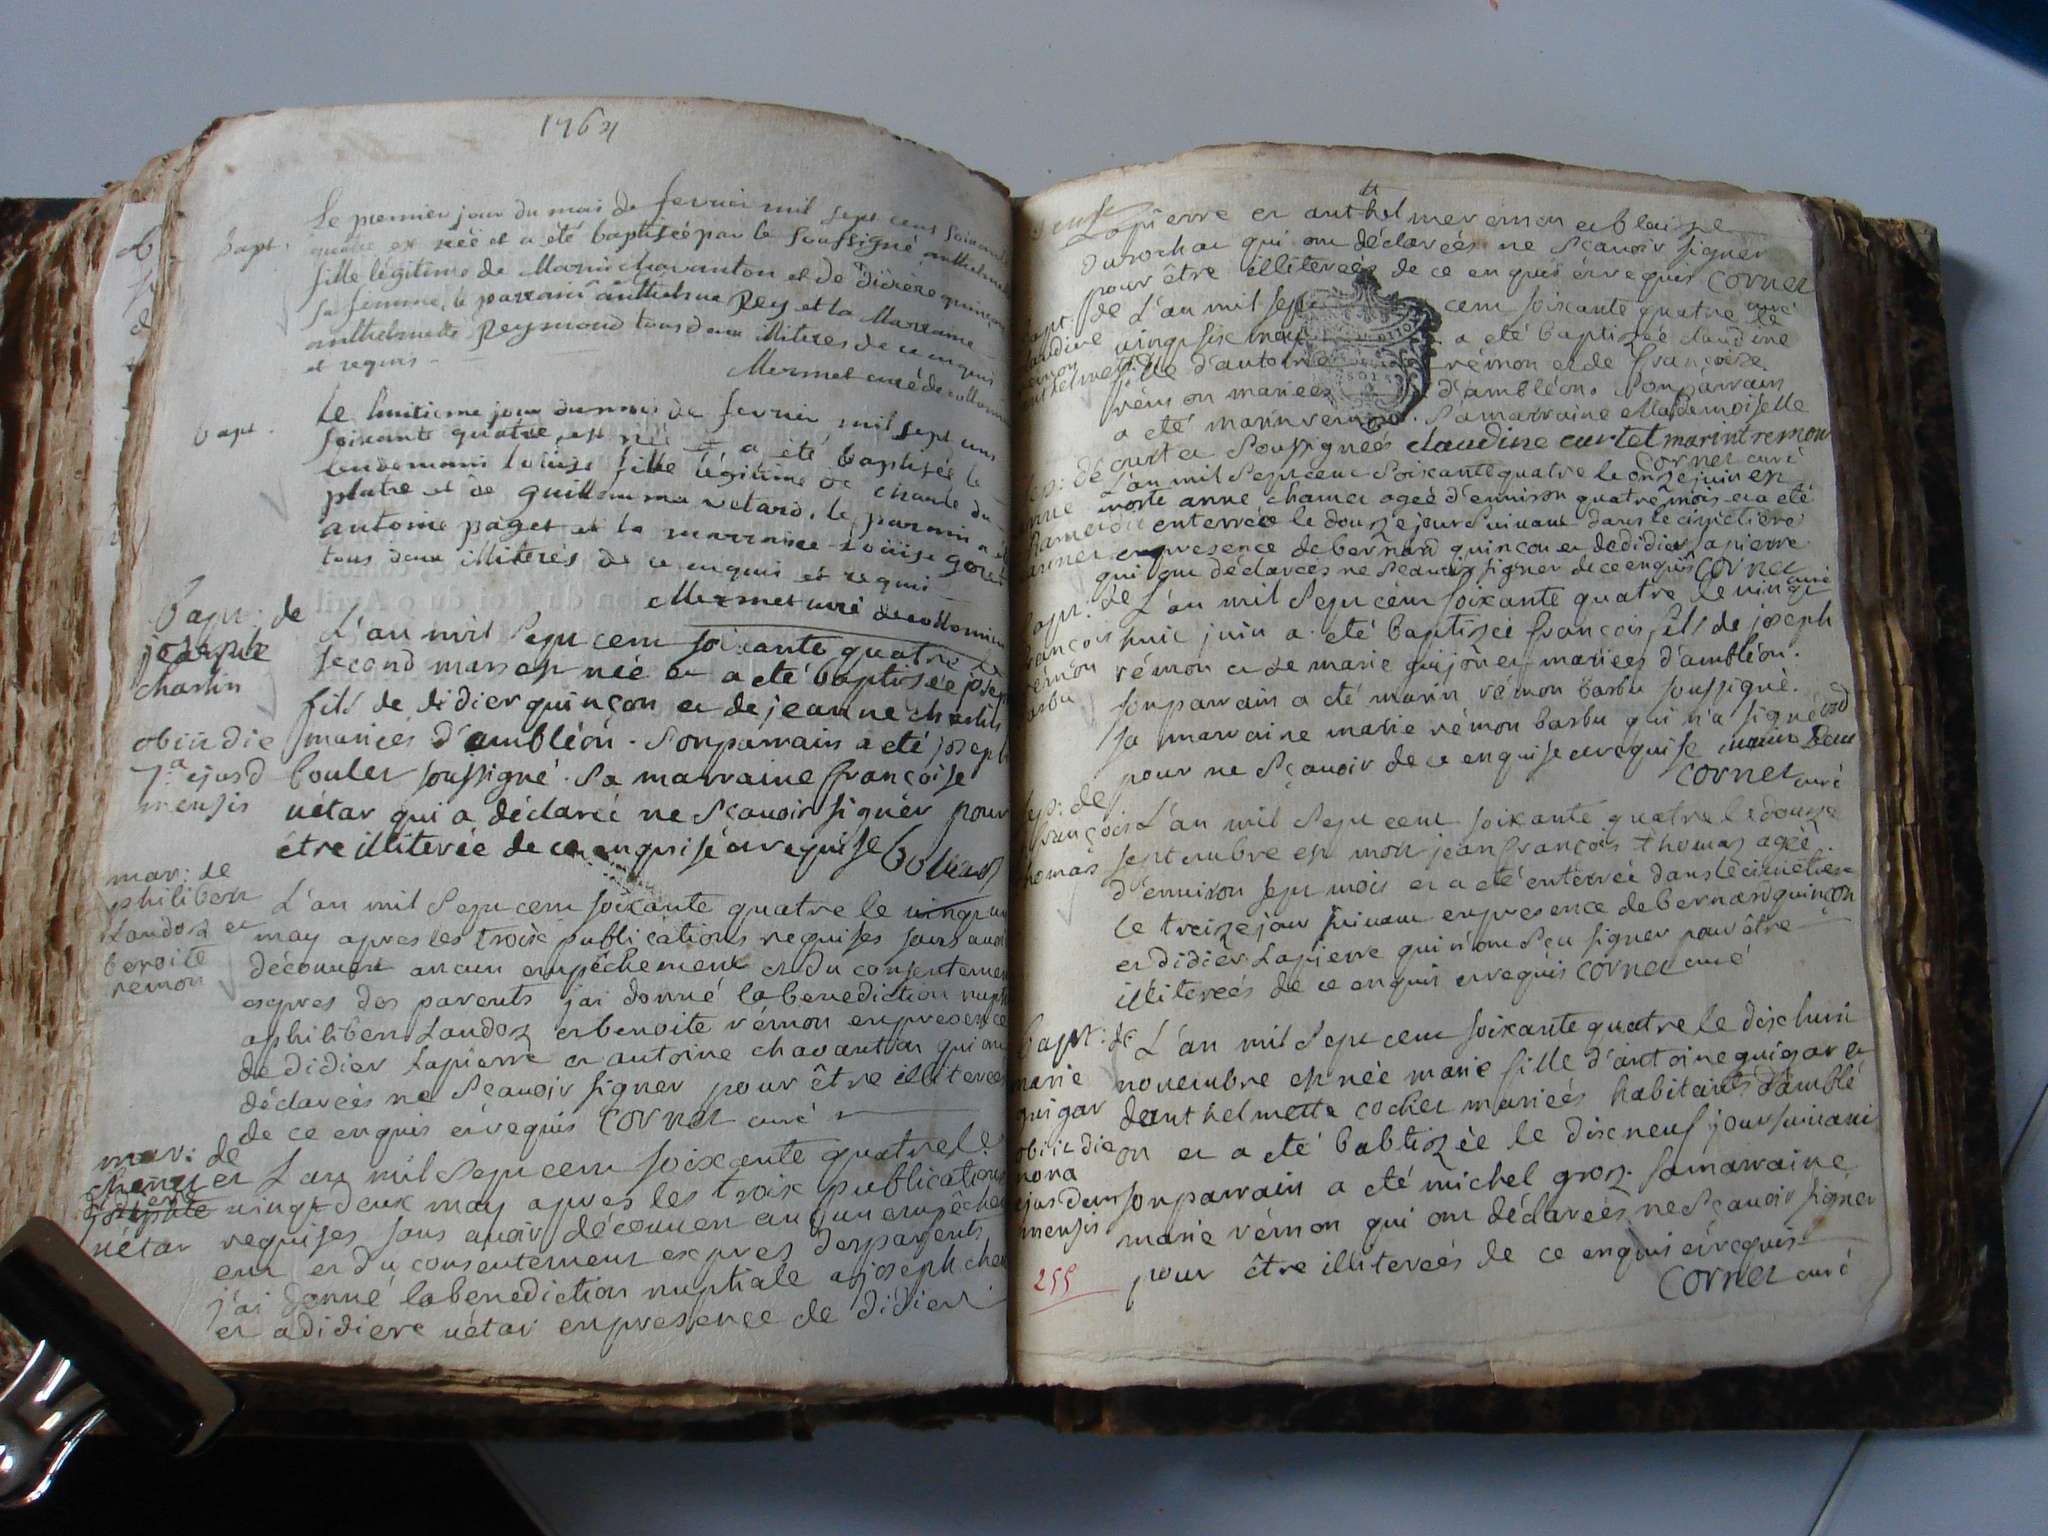 1764
bapt.
Le premier jour du mois de fevrier mil sept cens soixante
quatre est néë et a été baptiséé par le soussigné anthelmette
fille légitime de Marin chavanton et de didiere quinçon
sa femme, le parrain anthelme Rey et la Marraine
anthelmette Reymond tous deux illitires de ce enquis
et requis
Mermet curé de collomieu
bapt.
le huitieme jour du mois de fevrier mil sept cens
soixante quatre est née et a été baptiséé le
lendemain loüise fille légitime de claude du
platre et de guillemma vetard, le parrain a été
antoine paget et la marraine loüise goret
tous deux illiterés de ce enquis et requis
Mermet curé de collomieu
bapt: de
joseph
charlin
obiit die
7.a ejusd
mensis
L'an mil Sept cent soixante quatre le
second mars est néé et a été baptisée joseph
fils de didier quinçon et de jeanne charlin
mariéés d'ambléon. Son parrain a été joseph
boulet soussigné. Sa marraine françoise
uétar qui a déclaréé ne Sçauoir signér pour
être illiterée de ce enquisé et requise
mar: de
philibert
Landoz et
benoite
rémon
L'an mil Sept cent soixante quatre le vingt un
may apres les troix publications requises sans auoir
découuert aucun empêchement et du consentement
expres des parents jai donné la benediction nuptiale
a philibert Landoz et benoite rémon en presence
de didier Lapierre et antoine chavanton qui ont
déclaréés ne Sçauoir signer pour être illiteréés
de ce enquis et requis cornet curé
mar: de
chenet et
didiere
uétar
L'an mil Sept cent soixante quatre le
vingt deux may apres les troix publications
requises sans auoir découuert aucun empêchem
ent et du consentement expres des parents
j'ai donné la benediction nuptiale a joseph chenet
et a didiere uétar en presence de didier
Lapierre et anthelme rémon et blaise
durochat qui ont déclaréés ne Sçauoir signer
pour être illiteréés de ce enquis et requis cornet
curé
bapt: de
claudine
rémon
L'an mil sept cent soixante quatre le
vingt six may a été baptizéé claudine
fille d'antoine rémon et de françoise
rémon mariéés d'ambléon. Son parrain
a été marin rémon. Sa marraine Demoiselle
curtet Soussignéés claudine curtet marin remon
cornet curé
sep: de
anne
chamerat
L'an mil Sept cent Soixante quatre le onze juin est
morte anne chamer ageé d'enuiron quatre mois et a été
enterréé le douze jour Suiuant dans le cimetiere
en presence de bernard quinçon et de didier lapierre
qui ont déclaréés ne Sçauoir signer de ce enquis cornet
curé
bapt: de
françois
rémon
barbu
L'an mil Sept cent soixante quatre le vingt
huit juin a été baptizéé françois fils de joseph
rémon et de marie mariéés d'ambléon.
Son parrain a été marin rémon barbu soussigné.
Sa marraine marie rémon barbu qui n'a signé
pour ne Sçauoir de ce enquise et requise
cornet curé
sep: de
françois
thomas
L'an mil Sept cent soixante quatre le douze
septembre est mort jean françois thomas ageé
d'enuiron sept mois et a été enterréé dans le cimetiere
le treize jour suiuant en presence de bernard quinçon
et didier Lapierre qui n'ont Seu signer pour être
illiteréés de ce enquis et requis cornet curé
bapt: de
marie
guigar
obiit die
nona
ejusdem
mensis
L'an mil Sept cent soixante quatre le dix huit
novembre est néé marie fille d'antoine guigar et
d'anthelmette cochet mariéés habitants d'amblé
on et a été baptizée le dix neuf jour suiuant
son parrain a été michel groz. Sa marraine
marie rémon qui ont déclaréés ne Sçauoir signér
pour être illiteréés de ce enquis et requis
cornet curé
255